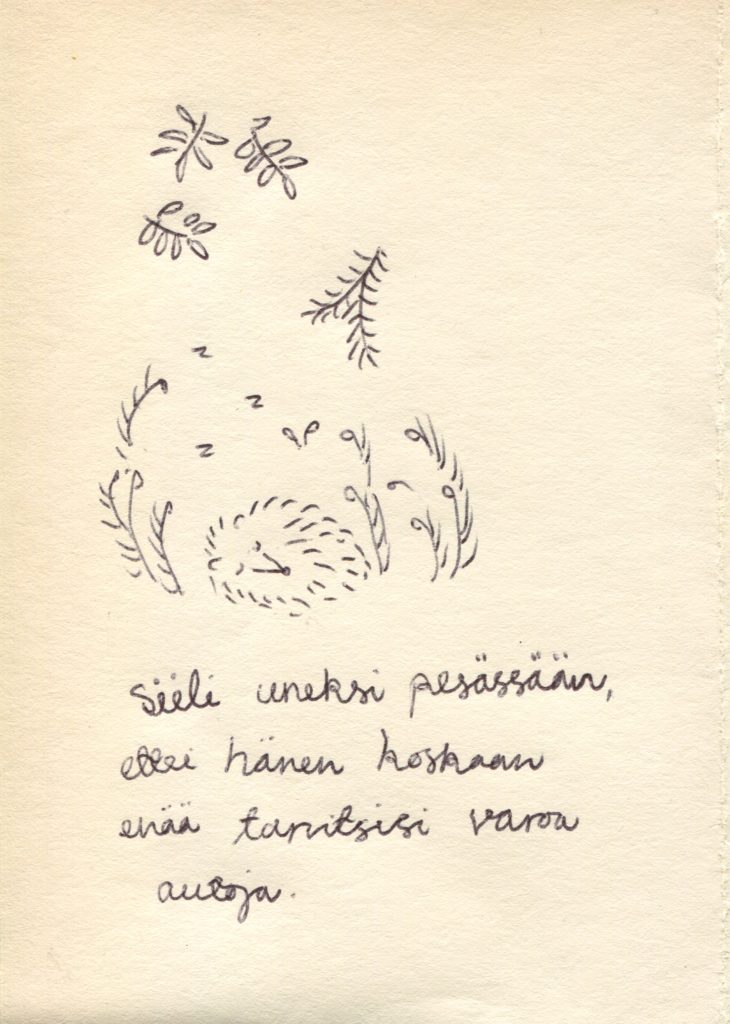 Siili uneksi pesässään,
ettei hänen koskaan
enää tarvitsisi varoa
autoja.